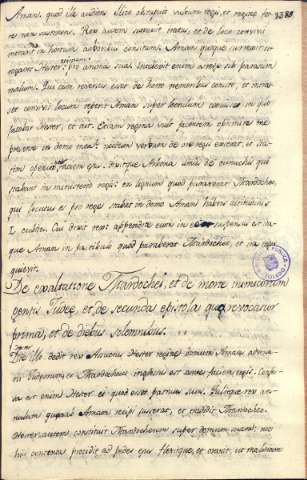 Amani, quod ille audiens illico obstupuit vultum regis, et reginae fer-
re non sustinens. Rex autem surrexit iratus, et de loco convivii
intravit in hortum arboribus consitum. Aman quoque surrexit ut
rogaret Hester reginam pro anima sua,
malum. Qui cum reversus esset de horto nemoribus consito, et intras-
set convivii locum reperit Aman super lectulum corruisse in quo
jacebat Hester, et ait. Etiam reginam vult
praesente in domo mea? necdum verbum de ore regis exierat, et sta-
tim operuerunt faciem ejus. dixitque Arbona unus de eunuchis qui
stabant in ministerio regis en lignum quod paraverat Mardocheo,
qui locutus est pro rege stat in domo Aman habens altitudinis
L cubitos. Cui dixit rex appendite eum in eo
que Aman in patibulo quod paraverat Mardocheo, et ira regis
quievit.
De exaltatione Mardochei, et de morte inimicorum
gentis Judeae, et de secunda epistola qua revocatur
prima, et de diebus solemnibus.
Die illo dedit rex Assuerus Hester reginae domum Aman adversa-
rii Judeorum, et Mardocheus ingressus est ante faciem regis. Confes-
sa est enim Hester quod esset patruus suus. Tulitque rex an-
nulum quem ab Aman recipi jusserat, et tradidit Mardocheo.
Hester autem constituit Mardocheum super domum suam; nec
his contenta procidit ad pedes regis flevitque, et oravit ut malitiam